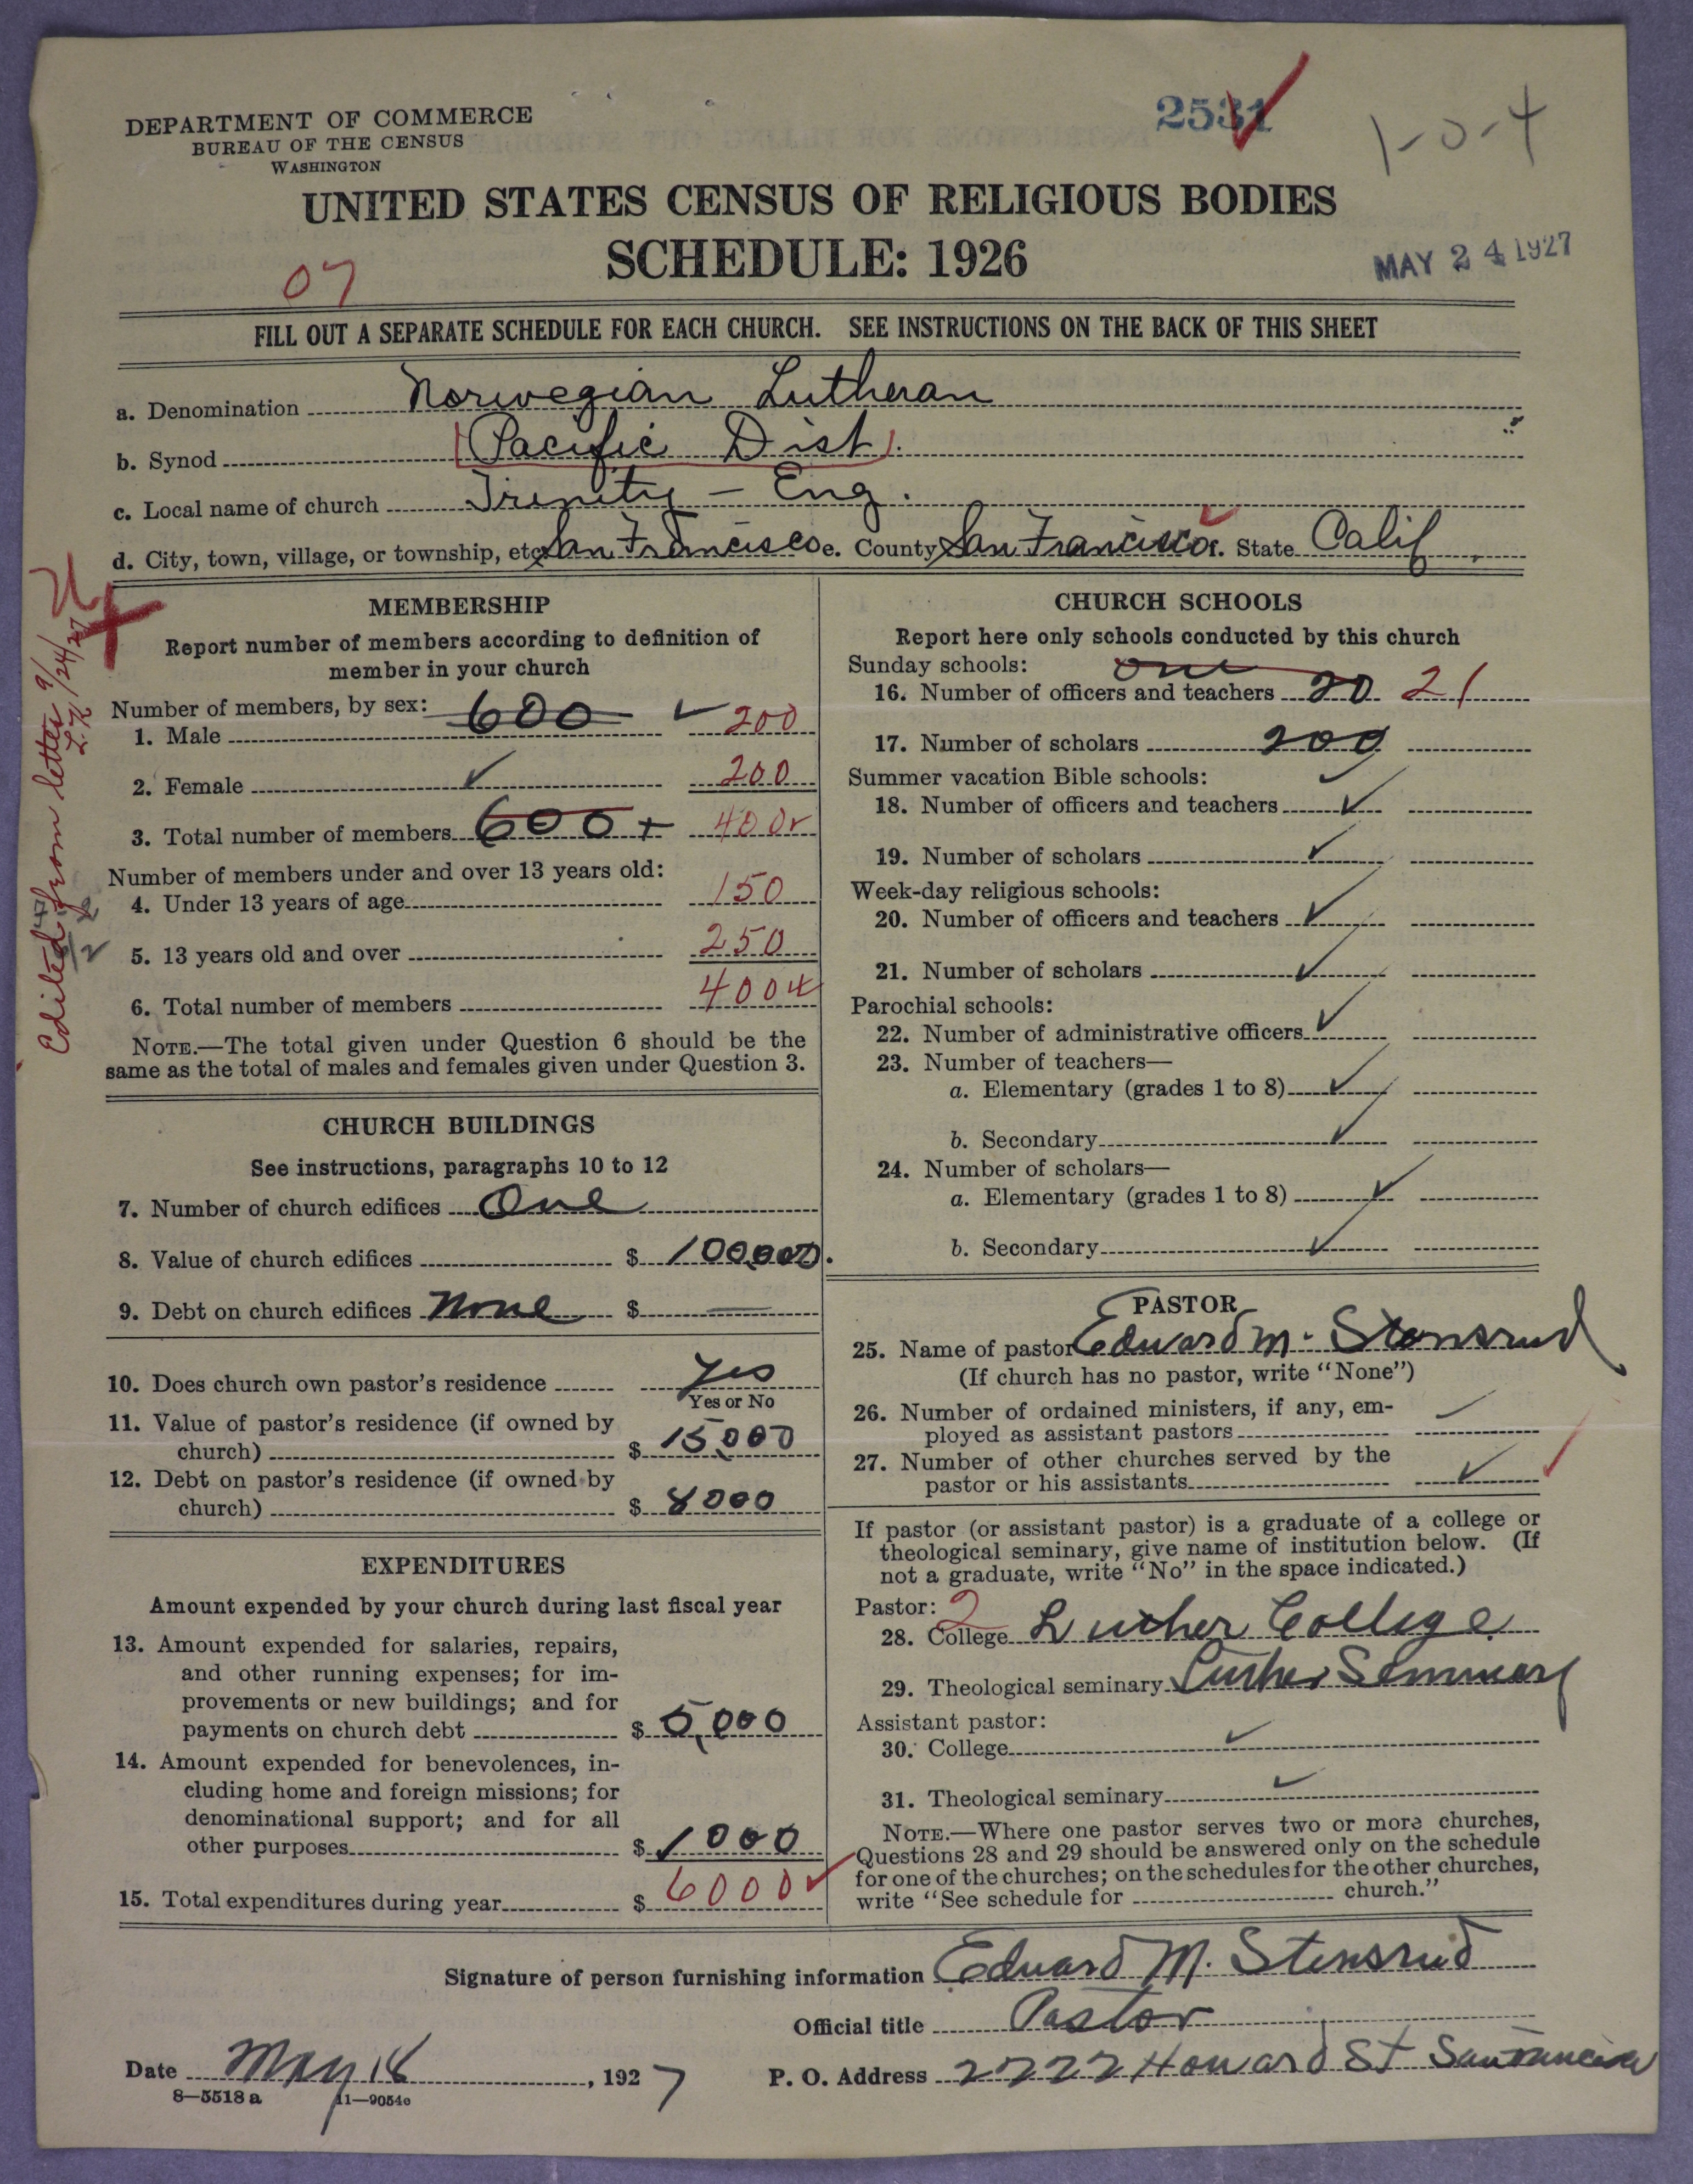 DEPARTMENT OF COMMERCE
BUREAU OF THE CENSUS
WASHINGTON
2531
1-0-4
UNITED STATES CENSUS OF RELIGIOUS BODIES
SCHEDULE: 1926
MAY 24 1927
07
FILL OUT A SEPARATE SCHEDULE FOR EACH CHURCH. SEE INSTRUCTIONS ON THE BACK OF THIS SHEET
a. Denomination Norwegian Lutheran
b. Synod (Pacific Dist).
c. Local name of church Trinity - Eng.
d. City, town, village, or township, etc. San Francisco e. County San Francisco f. State Calif.
Edited from letter 9/24/27 L.K.
MEMBERSHIP
Report number of members according to definition of
member in your church
Number of members, by sex:
1. Male 600 200
2. Female 200
3. Total number of members 600+ 400
Number of members under and over 13 years old:
4. Under 13 years of age 150
5. 13 years old and over 250
6. Total number of members 400
NOTE.—The total given under Question 6 should be the
same as the total of males and females given under Question 3.
CHURCH BUILDINGS
See instructions, paragraphs 10 to 12
7. Number of church edifices One
8. Value of church edifices $ 100,000.
9. Debt on church edifices None $ —
10. Does church own pastor's residence Yes
Yes or No
11. Value of pastor's residence (if owned by
church) $ 15,000
12. Debt on pastor's residence (if owned by
church) $ 8000
EXPENDITURES
Amount expended by your church during last fiscal year
13. Amount expended for salaries, repairs,
and other running expenses; for im-
provements or new buildings; and for
payments on church debt $ 5,000
14. Amount expended for benevolences, in-
cluding home and foreign missions; for
denominational support; and for all
other purposes $ 1000
15. Total expenditures during year $ 6000
CHURCH SCHOOLS
Report here only schools conducted by this church
Sunday schools: one
16. Number of officers and teachers 20 21
17. Number of scholars 200
Summer vacation Bible schools:
18. Number of officers and teachers
19. Number of scholars
Week-day religious schools:
20. Number of officers and teachers
21. Number of scholars
Parochial schools:
22. Number of administrative officers
23. Number of teachers—
a. Elementary (grades 1 to 8)
b. Secondary
24. Number of scholars—
a. Elementary (grades 1 to 8)
b. Secondary
PASTOR
25. Name of pastor Edward M. Stensrud
(If church has no pastor, write "None")
26. Number of ordained ministers, if any, em-
ployed as assistant pastors
27. Number of other churches served by the
pastor or his assistants
If pastor (or assistant pastor) is a graduate of a college or
theological seminary, give name of institution below. (If
not a graduate, write "No" in the space indicated.)
Pastor: 2
28. College Luther College
29. Theological seminary Luther Seminary
Assistant pastor:
30. College
31. Theological seminary
NOTE.—Where one pastor serves two or more churches,
Questions 28 and 29 should be answered only on the schedule
for one of the churches; on the schedules for the other churches,
write "See schedule for church."
Signature of person furnishing information Edward M. Stensrud
Official title Pastor
Date May 18, 1927
P. O. Address 2722 Howard St San Francisco
8—5518 a 11—9054c